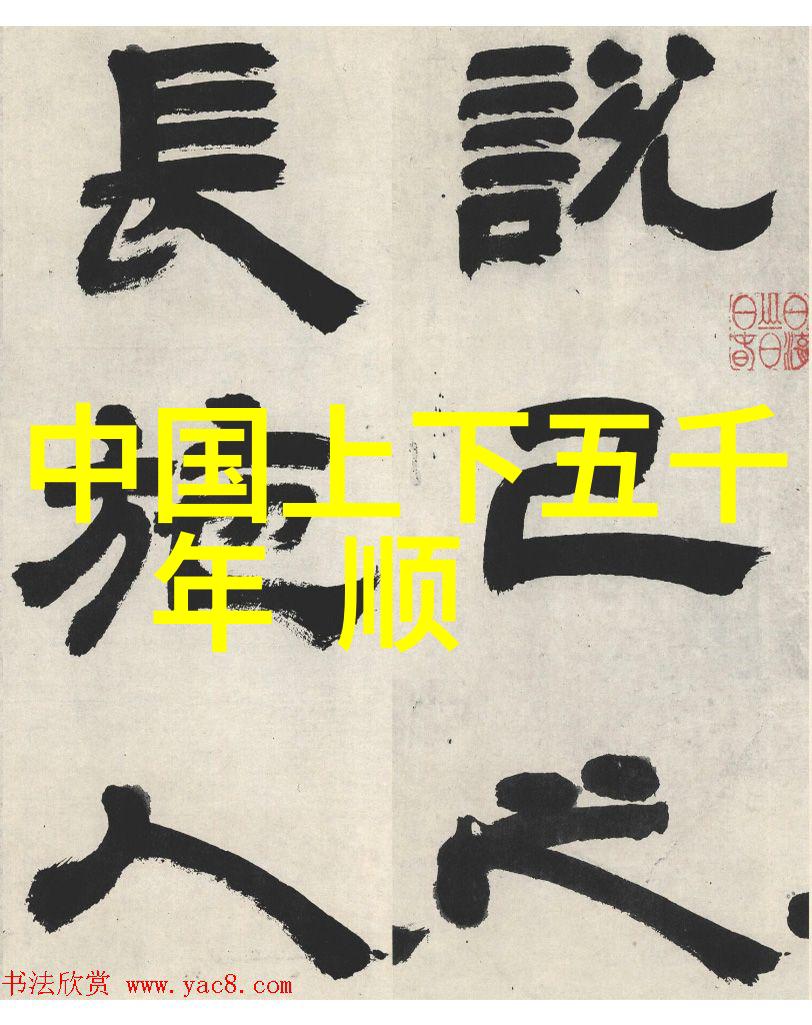 說己之
長施人
中国上下五千
年 顺
书法欣赏 www.yac8.com